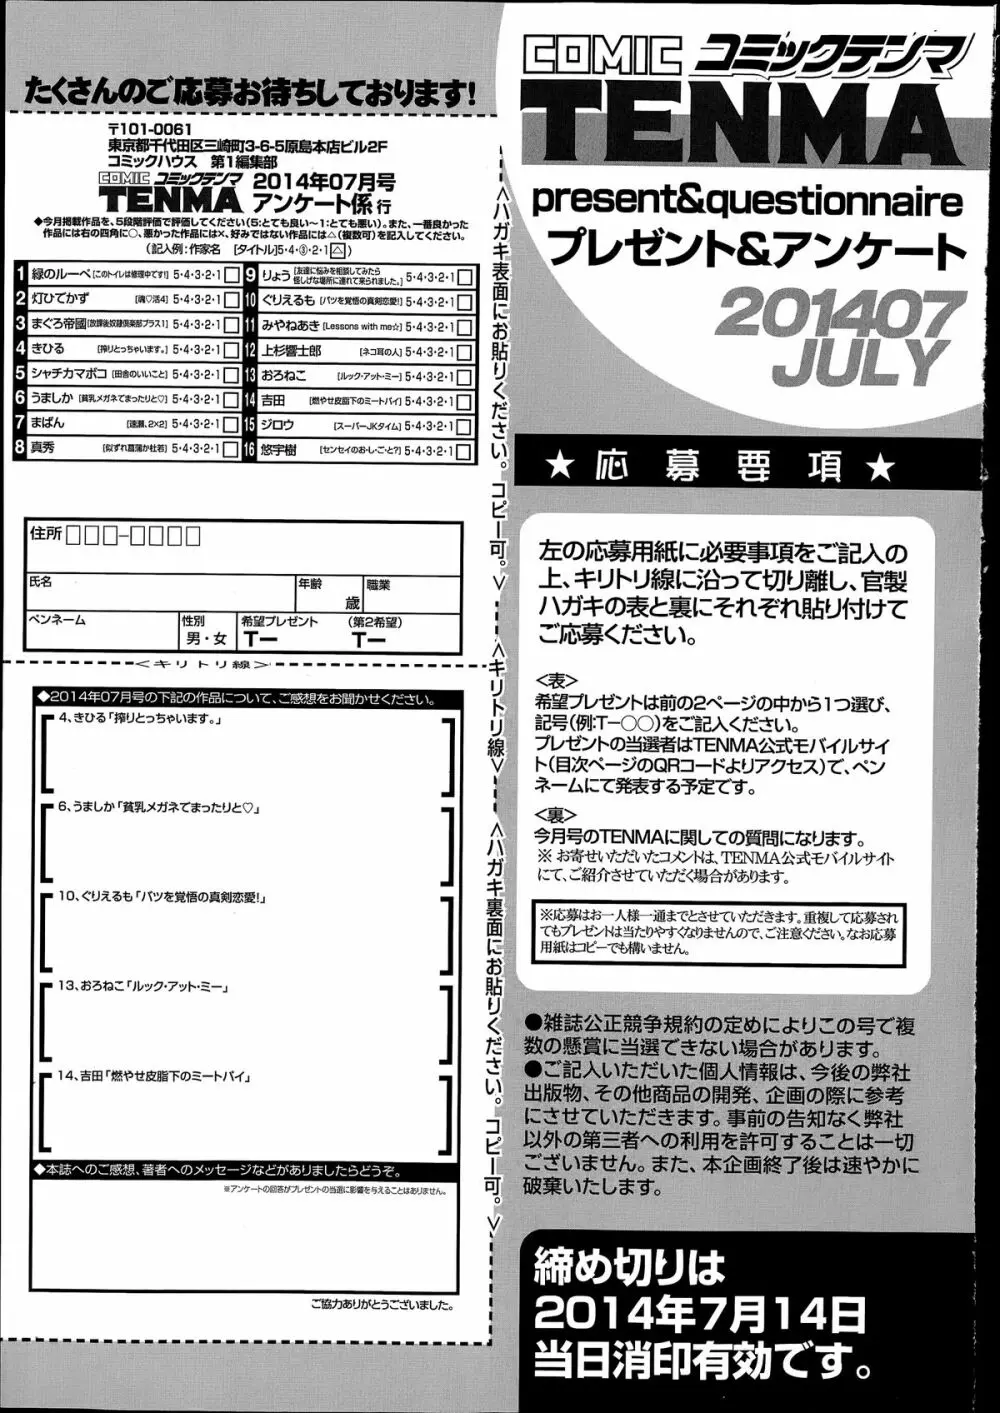 COMIC コミックテンマ
TENMA
present&questionnaire
プレゼント&アンケート
201407
JULY
★応募要項★
左の応募用紙に必要事項をご記入の
上、キリトリ線に沿って切り離し、官製
ハガキの表と裏にそれぞれ貼り付けて
ご応募ください。
<表>
希望プレゼントは前の2ページの中から1つ選び、
記号(例:T−○○)をご記入ください。
プレゼントの当選者はTENMA公式モバイルサイ
ト(目次ページのQRコードよりアクセス)で、ペン
ネームにて発表する予定です。
<裏>
今月号のTENMAに関しての質問になります。
※ お寄せいただいたコメントは、TENMA公式モバイルサイト
にて、ご紹介させていただく場合があります。
※応募はお一人様一通までとさせていただきます。重複して応募され
てもプレゼントは当たりやすくなりませんので、ご注意ください。なお応募
用紙はコピーでも構いません。
●雑誌公正競争規約の定めによりこの号で複
数の懸賞に当選できない場合があります。
●ご記入いただいた個人情報は、今後の弊社
出版物、その他商品の開発、企画の際に参考
にさせていただきます。事前の告知なく弊社
以外の第三者への利用を許可することは一切
ございません。また、本企画終了後は速やかに
破棄いたします。
締め切りは
2014年7月14日
当日消印有効です。
たくさんのご応募お待ちしております!
〒101-0061
東京都千代田区三崎町3-6-5原島本店ビル2F
コミックハウス 第1編集部
COMIC コミックテンマ
TENMA
2014年07月号
アンケート係 行
◆今月掲載作品を、5段階評価で評価してください(5:とても良い〜1:とても悪い)。また、一番良かった
作品には右の四角に○、悪かった作品には×、好みではない作品には△(複数可)を記入してください。
(記入例:作家名 [タイトル]5・4・③・2・1△)
1 緑のルーペ [このトイレは修理中です!] 5・4・3・2・1
2 灯ひでかず [魂♡活4] 5・4・3・2・1
3 まぐろ帝國 [放課後奴隷倶楽部プラス1] 5・4・3・2・1
4 きひる [搾りとっちゃいます。] 5・4・3・2・1
5 シャチカマボコ [田舎のいいこと] 5・4・3・2・1
6 うましか [貧乳メガネでまったりと♡] 5・4・3・2・1
7 まばん [速瀬、2×2] 5・4・3・2・1
8 真秀 [似ずれ菖蒲か杜若] 5・4・3・2・1
9 りょう [友達に悩みを相談してみたら怪しげな場所に連れて来られました。] 5・4・3・2・1
10 ぐりえるも [バツを覚悟の真剣恋愛!] 5・4・3・2・1
11 みやねあき [Lessons with me☆] 5・4・3・2・1
12 上杉響士郎 [ネコ耳の人] 5・4・3・2・1
13 おろねこ [ルック・アット・ミー] 5・4・3・2・1
14 吉田 [燃やせ皮脂下のミートパイ] 5・4・3・2・1
15 ジロウ [スーパーJKタイム] 5・4・3・2・1
16 悠宇樹 [センセイのお・し・ご・と?] 5・4・3・2・1
住所 □□□-□□□□
氏名
年齢
歳
職業
ペンネーム
性別
男・女
希望プレゼント
T−
(第2希望)
T−
<キリトリ線>
◆2014年07月号の下記の作品について、ご感想をお聞かせください。
4、きひる「搾りとっちゃいます。」
6、うましか「貧乳メガネでまったりと♡」
10、ぐりえるも「バツを覚悟の真剣恋愛!」
13、おろねこ「ルック・アット・ミー」
14、吉田「燃やせ皮脂下のミートパイ」
◆本誌へのご感想、著者へのメッセージなどがありましたらどうぞ。
※アンケートの回答がプレゼントの当選に影響を与えることはありません。
ご協力ありがとうございました。
<ハガキ表面にお貼りください。コピー可。>
<キリトリ線>
<ハガキ裏面にお貼りください。コピー可。>